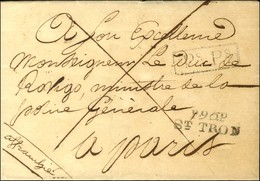 A Son Excellence
Monseigneur Le Duc de
Rovigo, ministre de la
police Générale
a paris
affranchie
P.96.P.
ST TRON